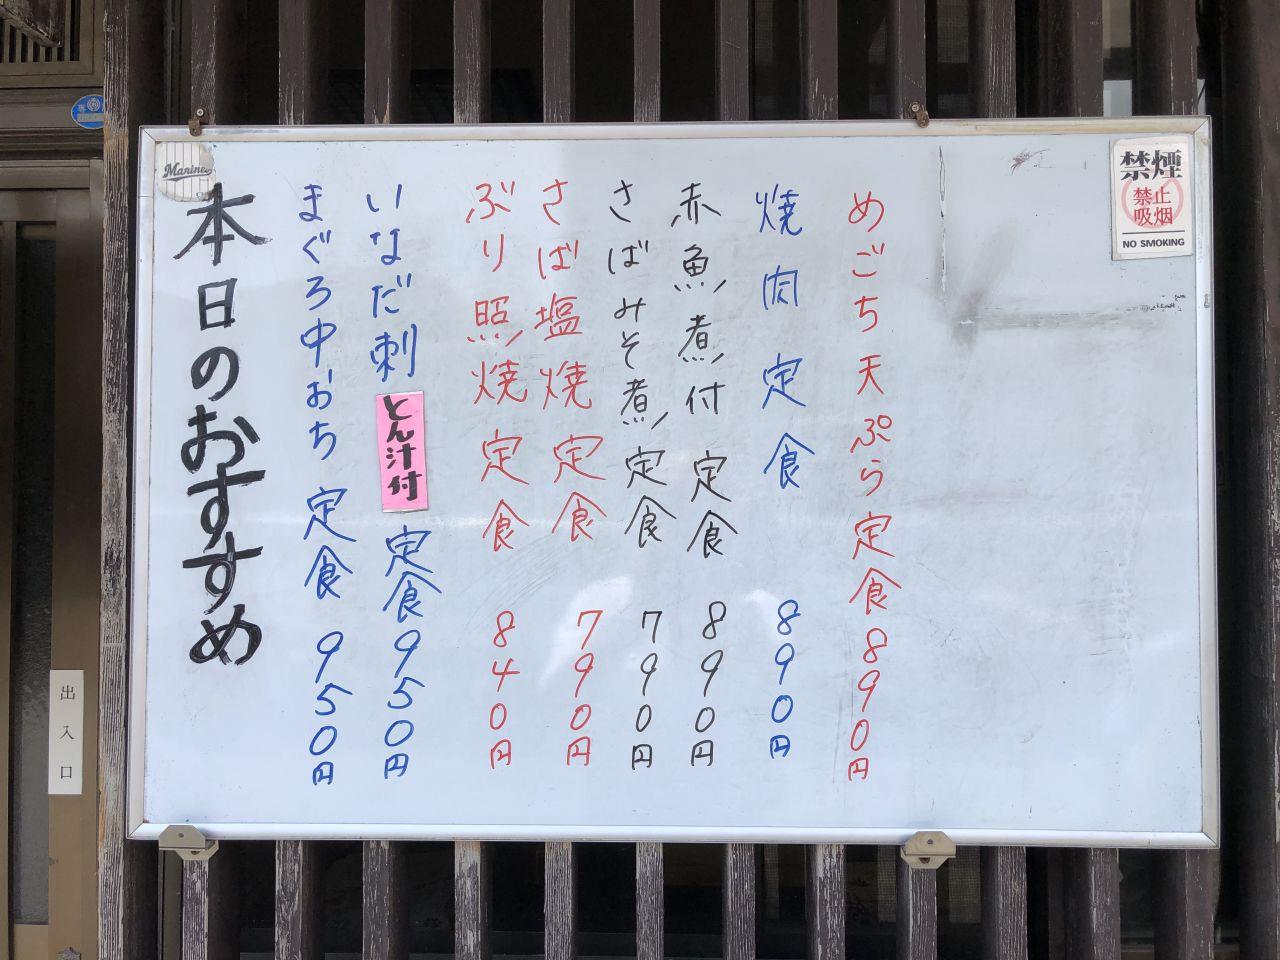 本日のおすすめ
めごち天ぷら定食890円
焼肉定食 890円
赤魚煮付定食 890円
さばみそ煮定食 790円
さば塩焼定食 790円
ぶり照焼定食 840円
いなだ刺 定食950円
とん汁付
まぐろ中おち定食 950円
禁煙
禁止
吸烟
NO SMOKING
Marines
出入口